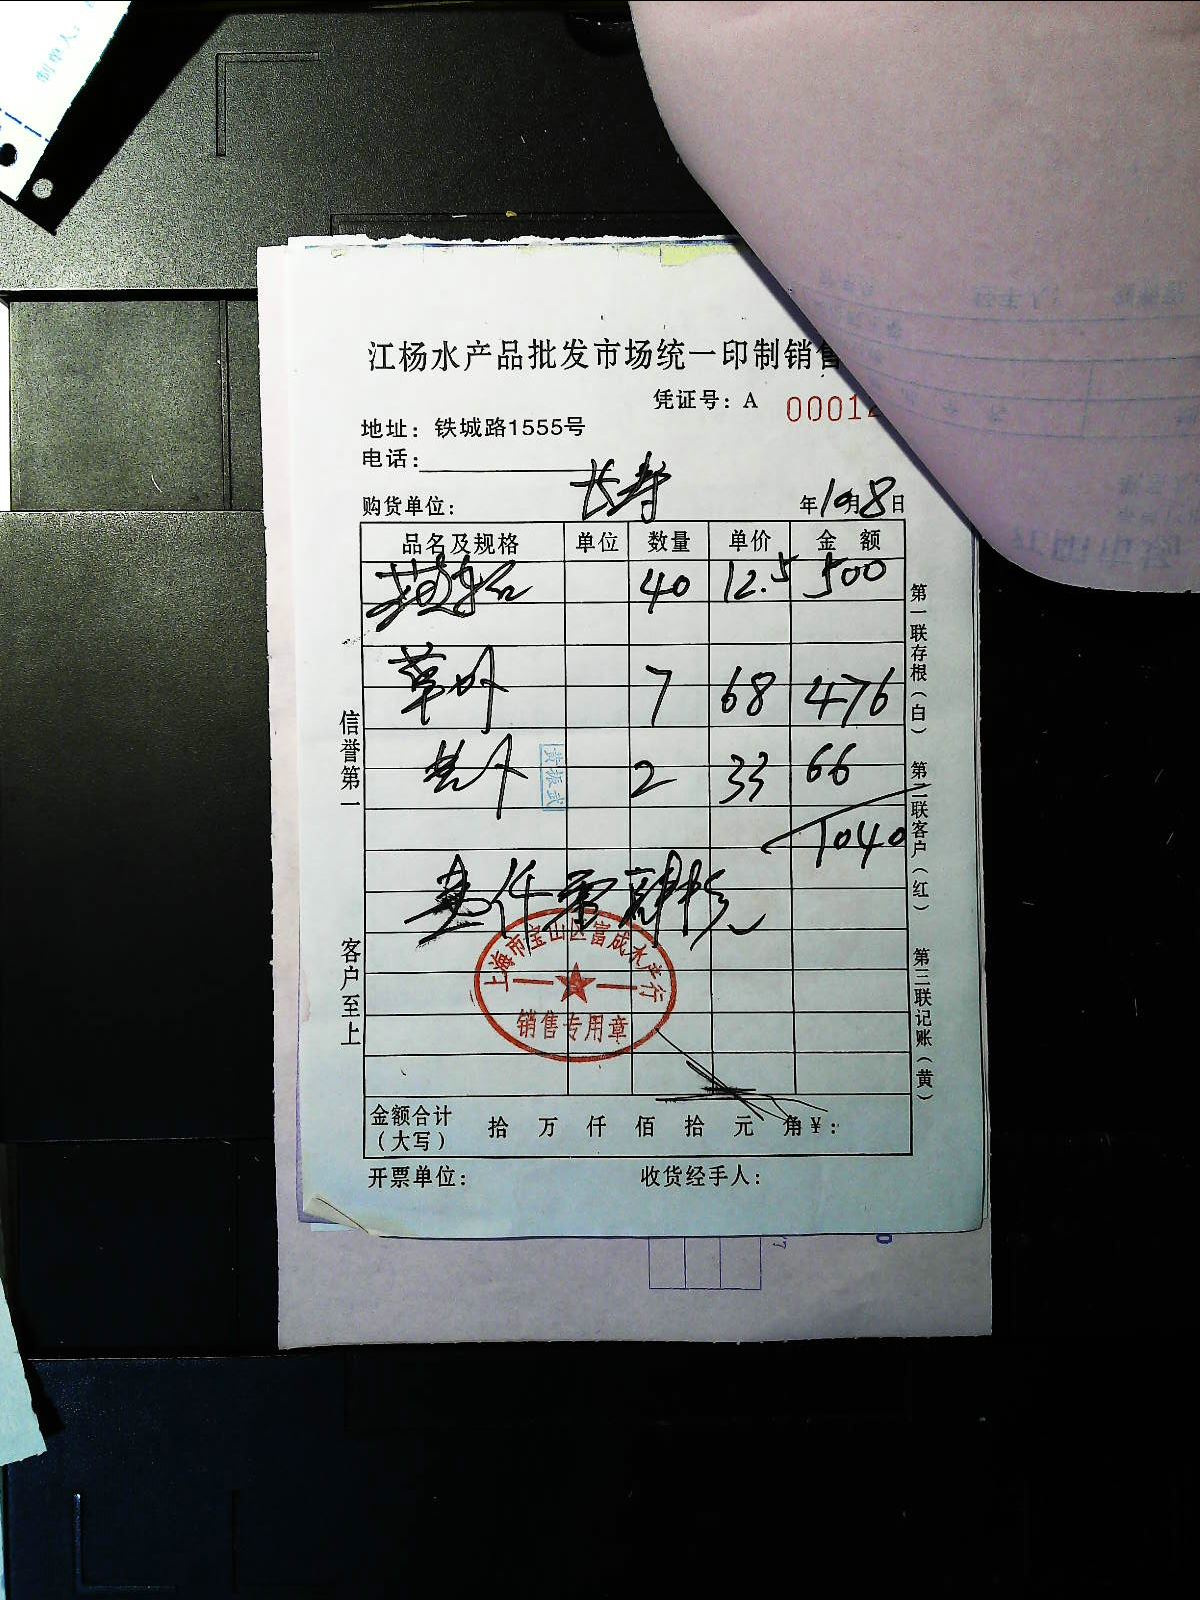 制单人:
江杨水产品批发市场统一印制销售
凭证号: A 00012
地址: 铁城路1555号
电话:
购货单位: 长寿 年10月8日
品名及规格 单位 数量 单价 金 额
40 12.5 500
草虾 7 68 476
2 33 66
1040
壹仟零肆拾元
黄振武
上海市宝山区富成水产行
销售专用章
金额合计
(大写) 拾 万 仟 佰 拾 元 角 ¥:
开票单位: 收货经手人:
信誉第一
客户至上
第一联存根(白)
第二联客户(红)
第三联记账(黄)